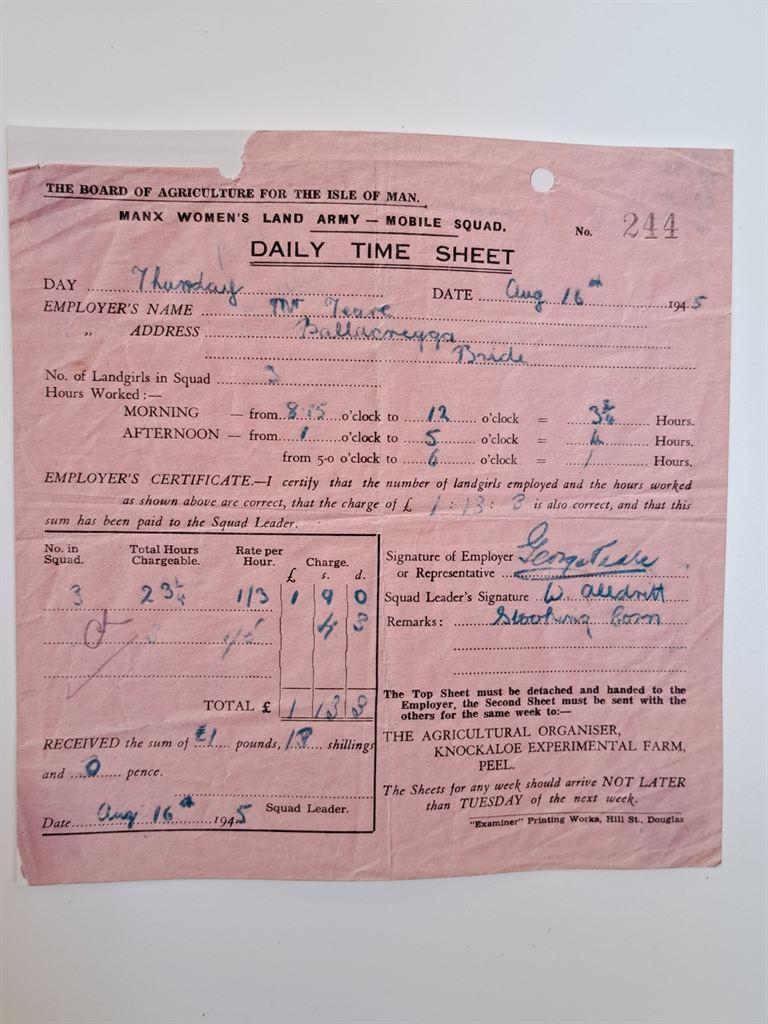 THE BOARD OF AGRICULTURE FOR THE ISLE OF MAN.
MANX WOMEN'S LAND ARMY — MOBILE SQUAD.
No. 244
DAILY TIME SHEET
DAY Thursday DATE Aug 16th 1945
EMPLOYER'S NAME Mr Teare
„ ADDRESS Ballacregga
Bride
No. of Landgirls in Squad 3
Hours Worked :—
MORNING — from 8.15 o'clock to 12 o'clock = 3¾ Hours.
AFTERNOON — from 1 o'clock to 5 o'clock = 4 Hours.
from 5-0 o'clock to 6 o'clock = 1 Hours.
EMPLOYER'S CERTIFICATE.—I certify that the number of landgirls employed and the hours worked
as shown above are correct, that the charge of £ 1 : 13 : 3 is also correct, and that this
sum has been paid to the Squad Leader.
No. in Squad. Total Hours Chargeable. Rate per Hour. Charge.
£ s. d.
3 23¼ 1/3 1 9 0
3 1/5 4 3
TOTAL £ 1 13 3
RECEIVED the sum of £1 pounds, shillings
and 0 pence.
Squad Leader.
Date Aug 16th 1945
Signature of Employer George Teare
or Representative
Squad Leader's Signature W.
Remarks : Stooking Corn
The Top Sheet must be detached and handed to the
Employer, the Second Sheet must be sent with the
others for the same week to:—
THE AGRICULTURAL ORGANISER,
KNOCKALOE EXPERIMENTAL FARM,
PEEL.
The Sheets for any week should arrive NOT LATER
than TUESDAY of the next week.
"Examiner" Printing Works, Hill St., Douglas